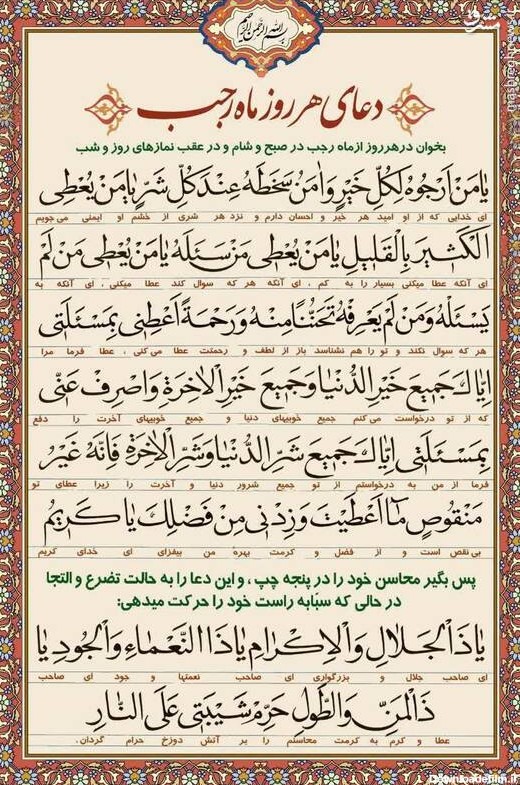 بسم الله الرحمن الرحیم
دعای هر روز ماه رجب
بخوان در هر روز از ماه رجب در صبح و شام و در عقب نمازهای روز و شب
یٰا مَنْ اَرْجُوهُ لِکُلِّ خَیْرٍ وَ اٰمَنُ سَخَطَهُ عِنْدَ کُلِّ شَرٍّ یٰا مَنْ یُعْطِی
ای خدایی که از او امید هر خیر و احسان دارم و نزد هر شری از خشم او ایمنی می جویم
الْکَثیرَ بِالْقَلیلِ یٰا مَنْ یُعْطی مَنْ سَئَلَهُ یٰا مَنْ یُعْطی مَنْ لَمْ
ای آنکه عطا میکنی بسیار را به کم ، ای آنکه هر که سوال کند عطا میکنی ، ای آنکه به
یَسْئَلْهُ وَ مَنْ لَمْ یَعْرِفْهُ تَحَنُّنًا مِنْهُ وَ رَحْمَةً اَعْطِنی بِمَسْئَلَتی
هر که سوال نکند و تو را هم نشناسد باز از لطف و رحمتت عطا می کنی ، عطا فرما مرا
اِیّاکَ جَمیعَ خَیْرِ الدُّنْیٰا وَ جَمیعَ خَیْرِ الْاٰخِرَةِ وَ اصْرِفْ عَنّی
که از تو درخواست می کنم جمیع خوبیهای دنیا و جمیع خوبیهای آخرت را دفع
بِمَسْئَلَتی اِیّاکَ جَمیعَ شَرِّ الدُّنْیٰا وَ شَرِّ الْاٰخِرَةِ فَاِنَّهُ غَیْرُ
فرما از من به درخواستم از تو جمیع شرور دنیا و آخرت را زیرا عطای تو
مَنْقُوصٍ مٰا اَعْطَیْتَ وَ زِدْنی مِنْ فَضْلِکَ یٰا کَریمُ
بی نقص است و از فضل و کرمت بهره من بیفزای ای خدای کریم
پس بگیر محاسن خود را در پنجه چپ ، و این دعا را به حالت تضرع و التجا
در حالی که سبّابه راست خود را حرکت میدهی:
یٰا ذَا الْجَلٰالِ وَ الْاِکْرٰامِ یٰا ذَا النَّعْمٰاءِ وَ الْجُودِ یٰا
ای صاحب جلال و بزرگواری ای صاحب نعمتها و جود ای صاحب
ذَا الْمَنِّ وَ الطَّوْلِ حَرِّمْ شَیْبَتی عَلَی النّٰارِ
عطا و کرم به کرمت محاسنم را بر آتش دوزخ حرام گردان.